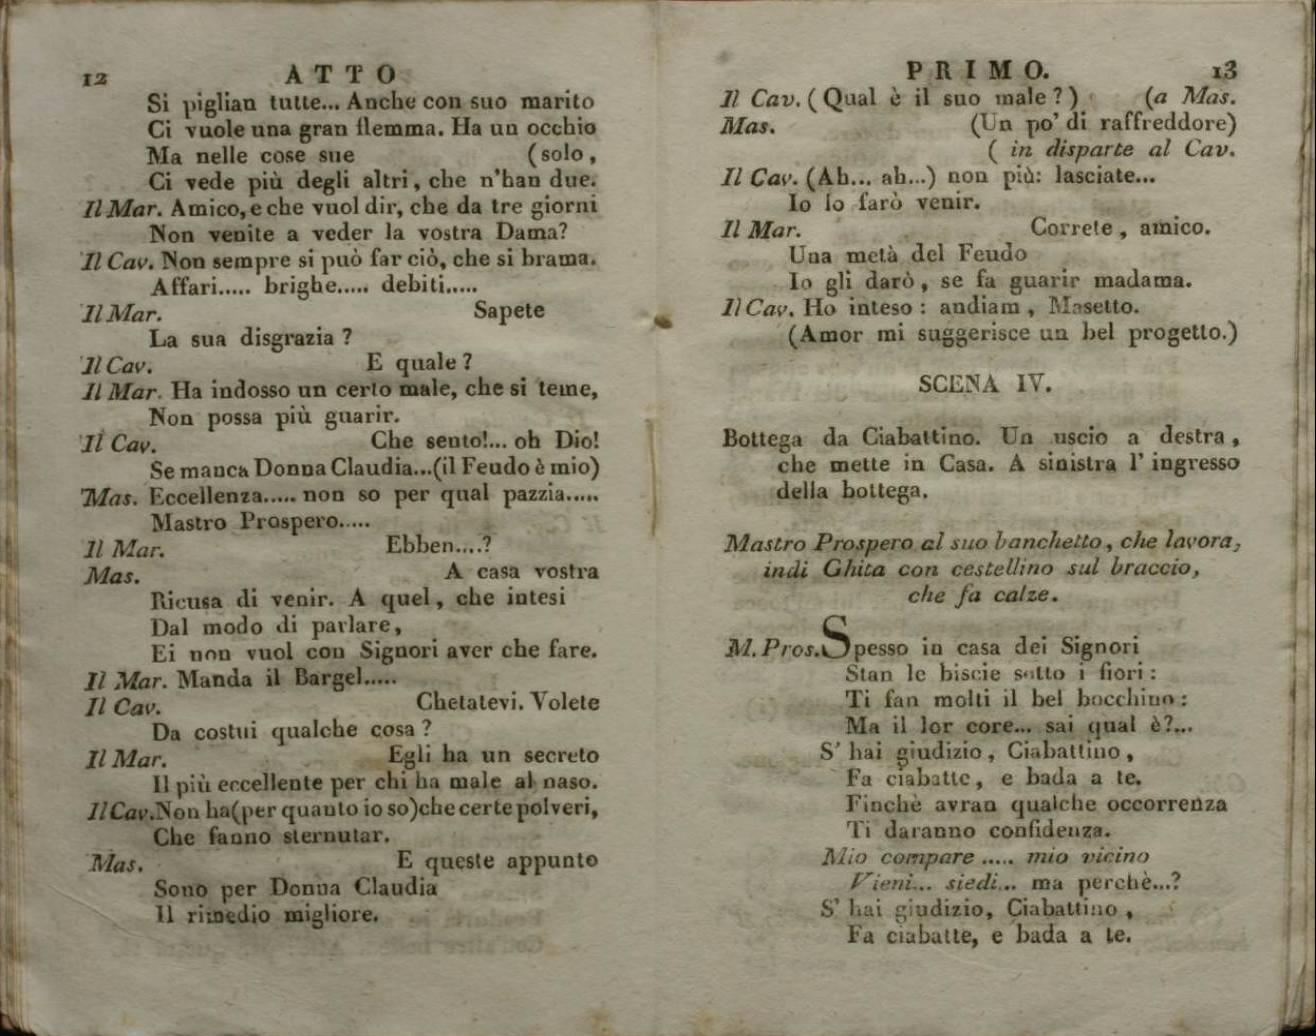 12 ATTO
Si piglian tutte... Anche con suo marito
Ci vuole una gran flemma. Ha un occhio
Ma nelle cose sue (solo,
Ci vede più degli altri, che n'han due.
Il Mar. Amico, e che vuol dir, che da tre giorni
Non venite a veder la vostra Dama?
Il Cav. Non sempre si può far ciò, che si brama.
Affari..... brighe..... debiti.....
Il Mar. Sapete
La sua disgrazia?
Il Cav. E quale?
Il Mar. Ha indosso un certo male, che si teme,
Non possa più guarir.
Il Cav. Che sento!... oh Dio!
Se manca Donna Claudia...(il Feudo è mio)
Mas. Eccellenza..... non so per qual pazzia.....
Mastro Prospero.....
Il Mar. Ebben....?
Mas. A casa vostra
Ricusa di venir. A quel, che intesi
Dal modo di parlare,
Ei non vuol con Signori aver che fare.
Il Mar. Manda il Bargel.....
Il Cav. Chetatevi. Volete
Da costui qualche cosa?
Il Mar. Egli ha un secreto
Il più eccellente per chi ha male al naso.
Il Cav. Non ha(per quanto io so)che certe polveri,
Che fanno sternutar.
Mas. E queste appunto
Sono per Donna Claudia
Il rimedio migliore.
PRIMO. 13
Il Cav. (Qual è il suo male?) (a Mas.
Mas. (Un po' di raffreddore)
( in disparte al Cav.
Il Cav. (Ah... ah...) non più: lasciate...
Io lo farò venir.
Il Mar. Correte, amico.
Una metà del Feudo
Io gli darò, se fa guarir madama.
Il Cav. Ho inteso: andiam, Masetto.
(Amor mi suggerisce un bel progetto.)
SCENA IV.
Bottega da Ciabattino. Un uscio a destra,
che mette in Casa. A sinistra l'ingresso
della bottega.
Mastro Prospero al suo banchetto, che lavora,
indi Ghita con cestellino sul braccio,
che fa calze.
M. Pros. Spesso in casa dei Signori
Stan le biscie sotto i fiori:
Ti fan molti il bel bocchino:
Ma il lor core... sai qual è?...
S' hai giudizio, Ciabattino,
Fa ciabatte, e bada a te.
Finchè avran qualche occorrenza
Ti daranno confidenza.
Mio compare ..... mio vicino
Vieni... siedi... ma perchè...?
S' hai giudizio, Ciabattino,
Fa ciabatte, e bada a te.